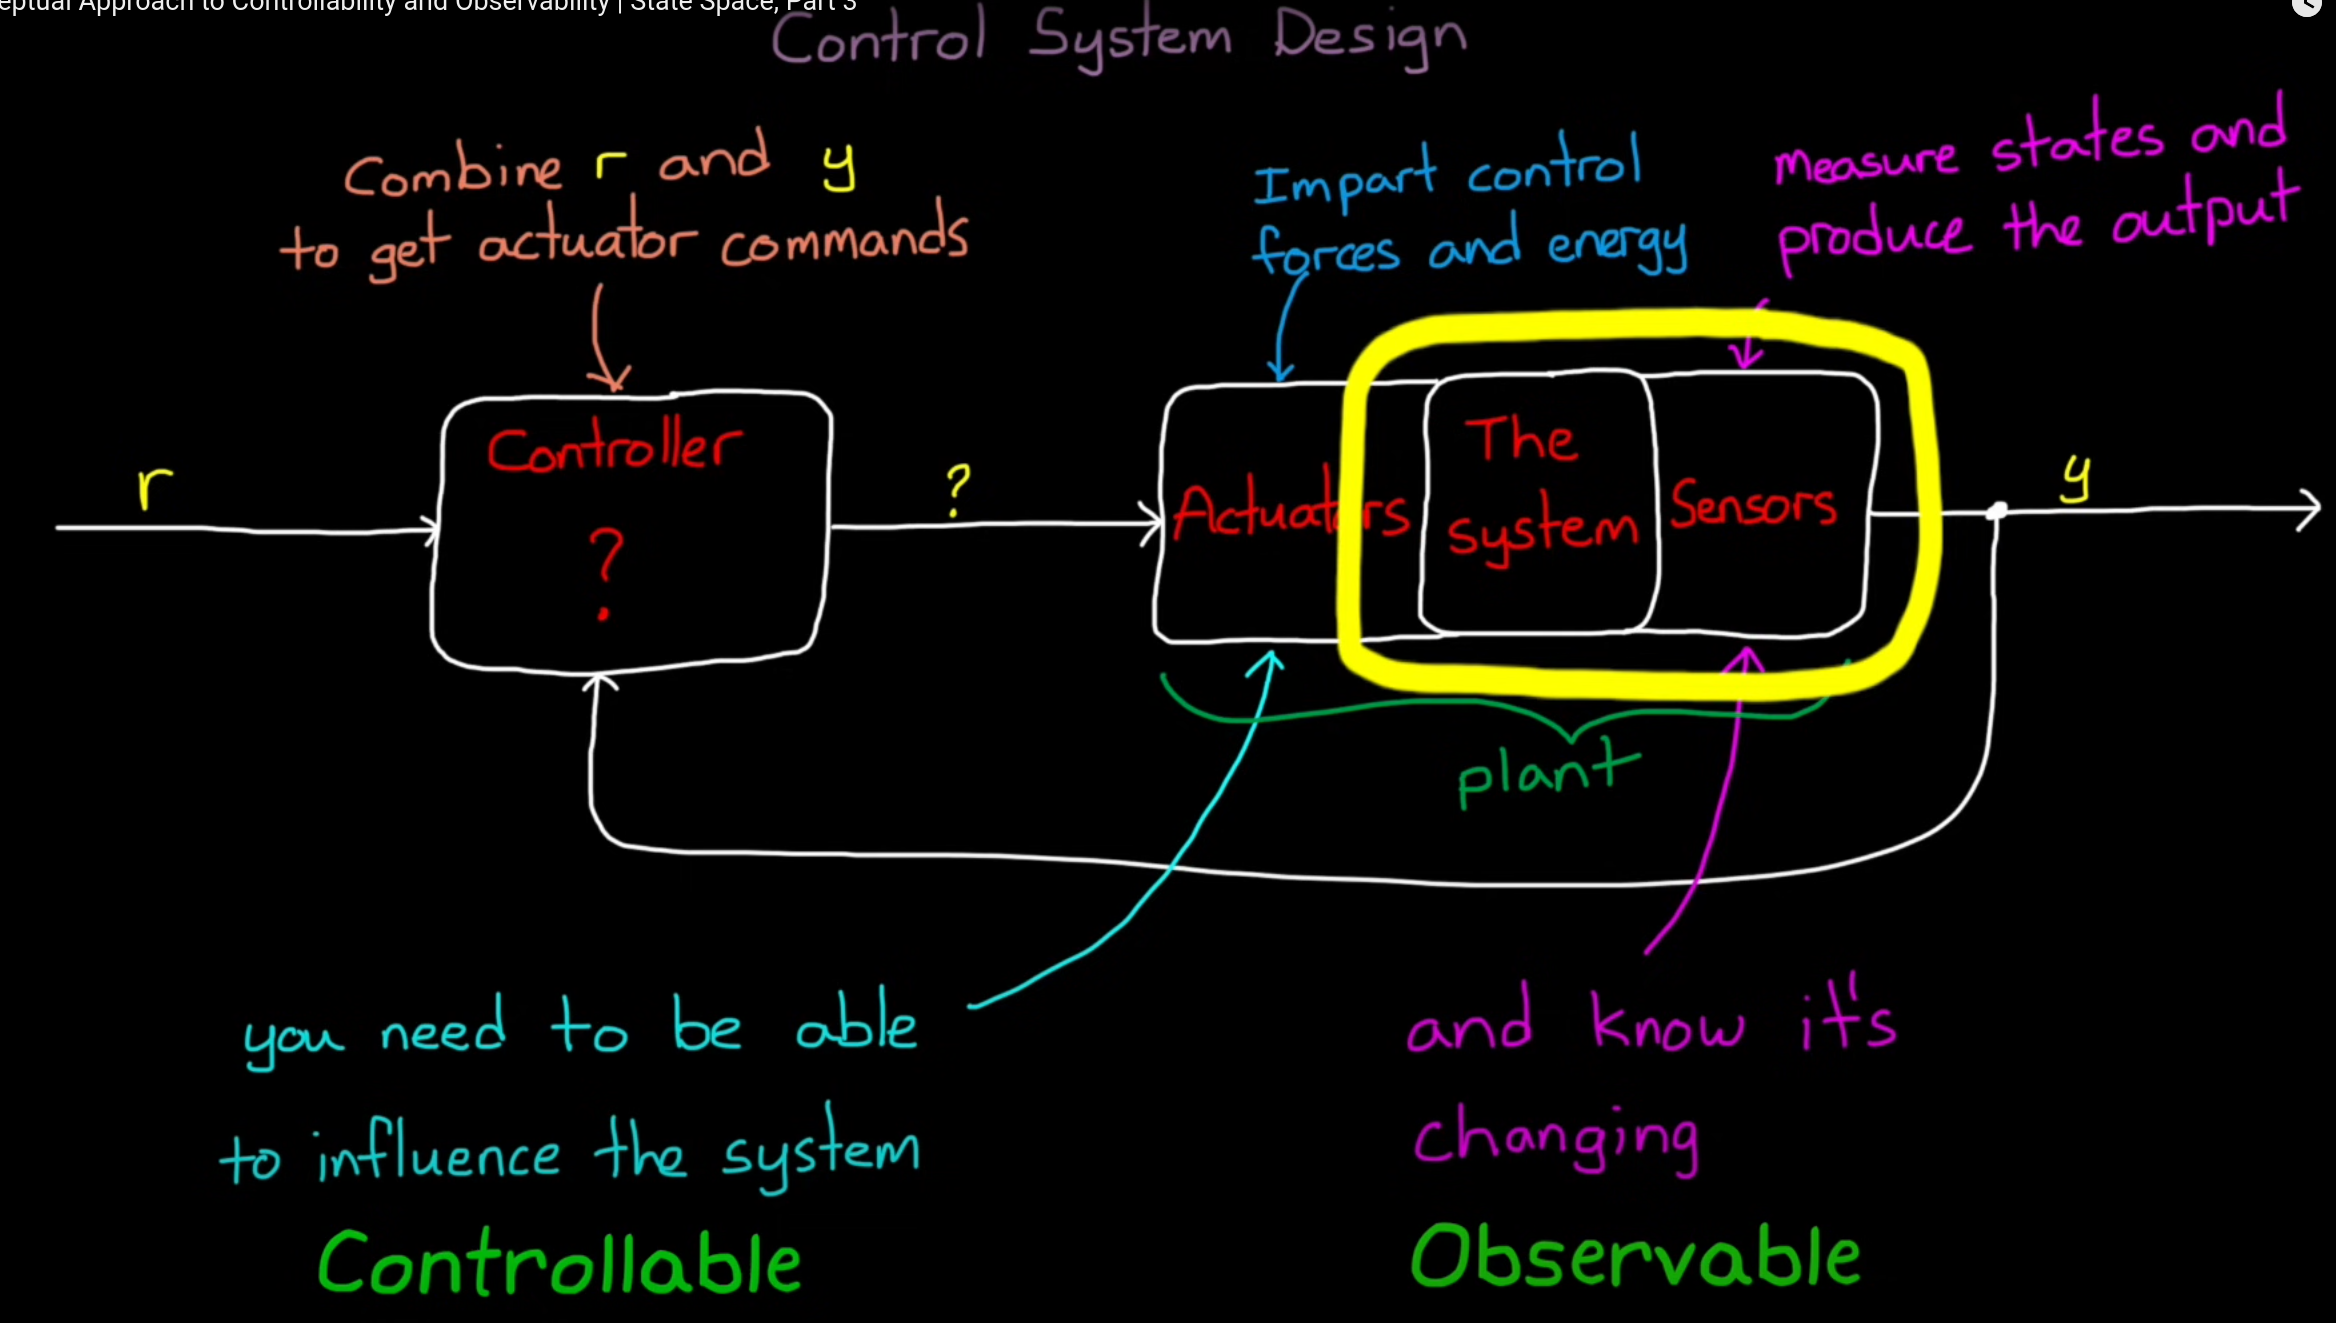 eptual Approach to Controllability and Observability | State Space, Part 3
Control System Design
Combine r and y
to get actuator commands
Impart control
forces and energy
measure states and
produce the output
r
Controller
?
?
Actuators
The
system
Sensors
y
plant
you need to be able
to influence the system
Controllable
and know it's
changing
Observable